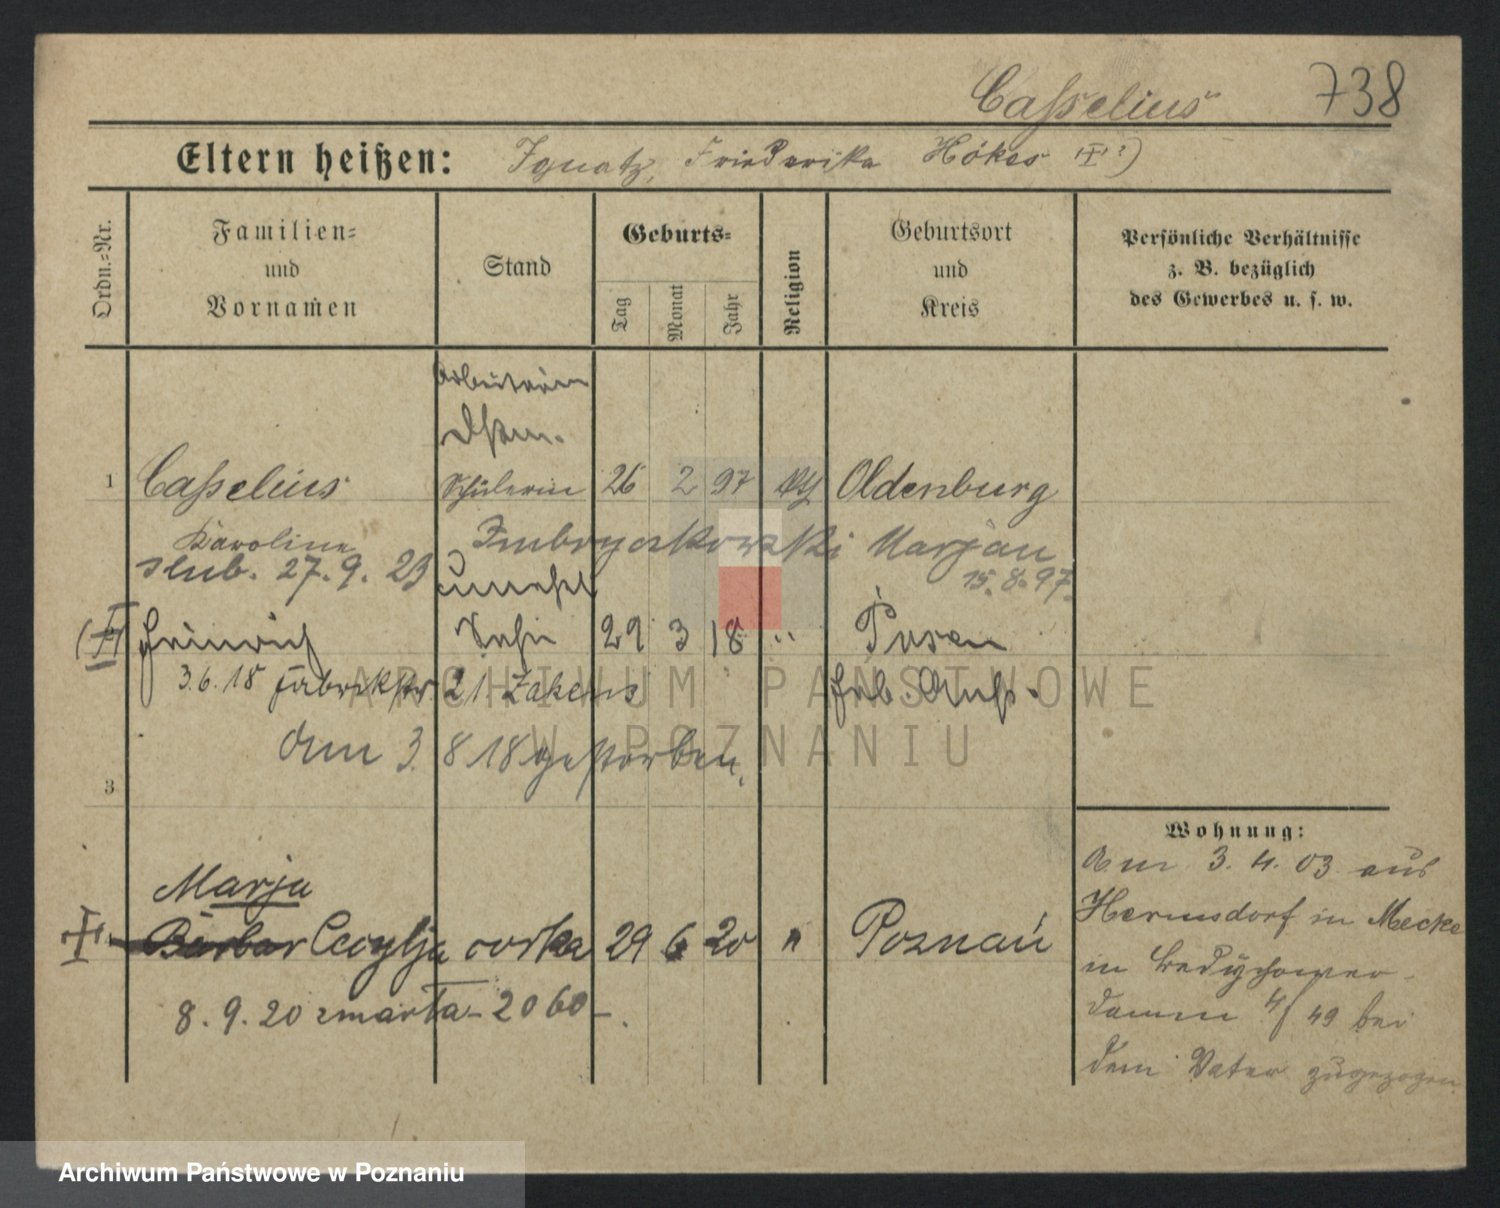 Casselius 738
Eltern heißen: Ignatz, Friederika Hökes
Ordn.-Nr.
Familien-
und
Vornamen
Stand
Geburts-
Tag
Monat
Jahr
Religion
Geburtsort
und
Kreis
Persönliche Verhältnisse
z. B. bezüglich
des Gewerbes u. s. w.
Arbeiterin
1 Casselius Schülerin 26 2 97 Oldenburg
Karoline Marjan
slub. 27.9.23 15.8.97
unehel
Heinrich Sohn 29 3 18 " Posen
3.6.18 21
am 3. 8 18 gestorben.
3
Wohnung:
Am 3. 4. 03 aus
Hermsdorf in Meckl
in
damm 4/ 49 bei
dem Vater zugezogen
Marja
Barbar Cecylja córka 29 6 20 " Poznań
8. 9. 20 zmarła - 2060 -.
ARCHIWUM PAŃSTWOWE
W POZNANIU
Archiwum Państwowe w Poznaniu